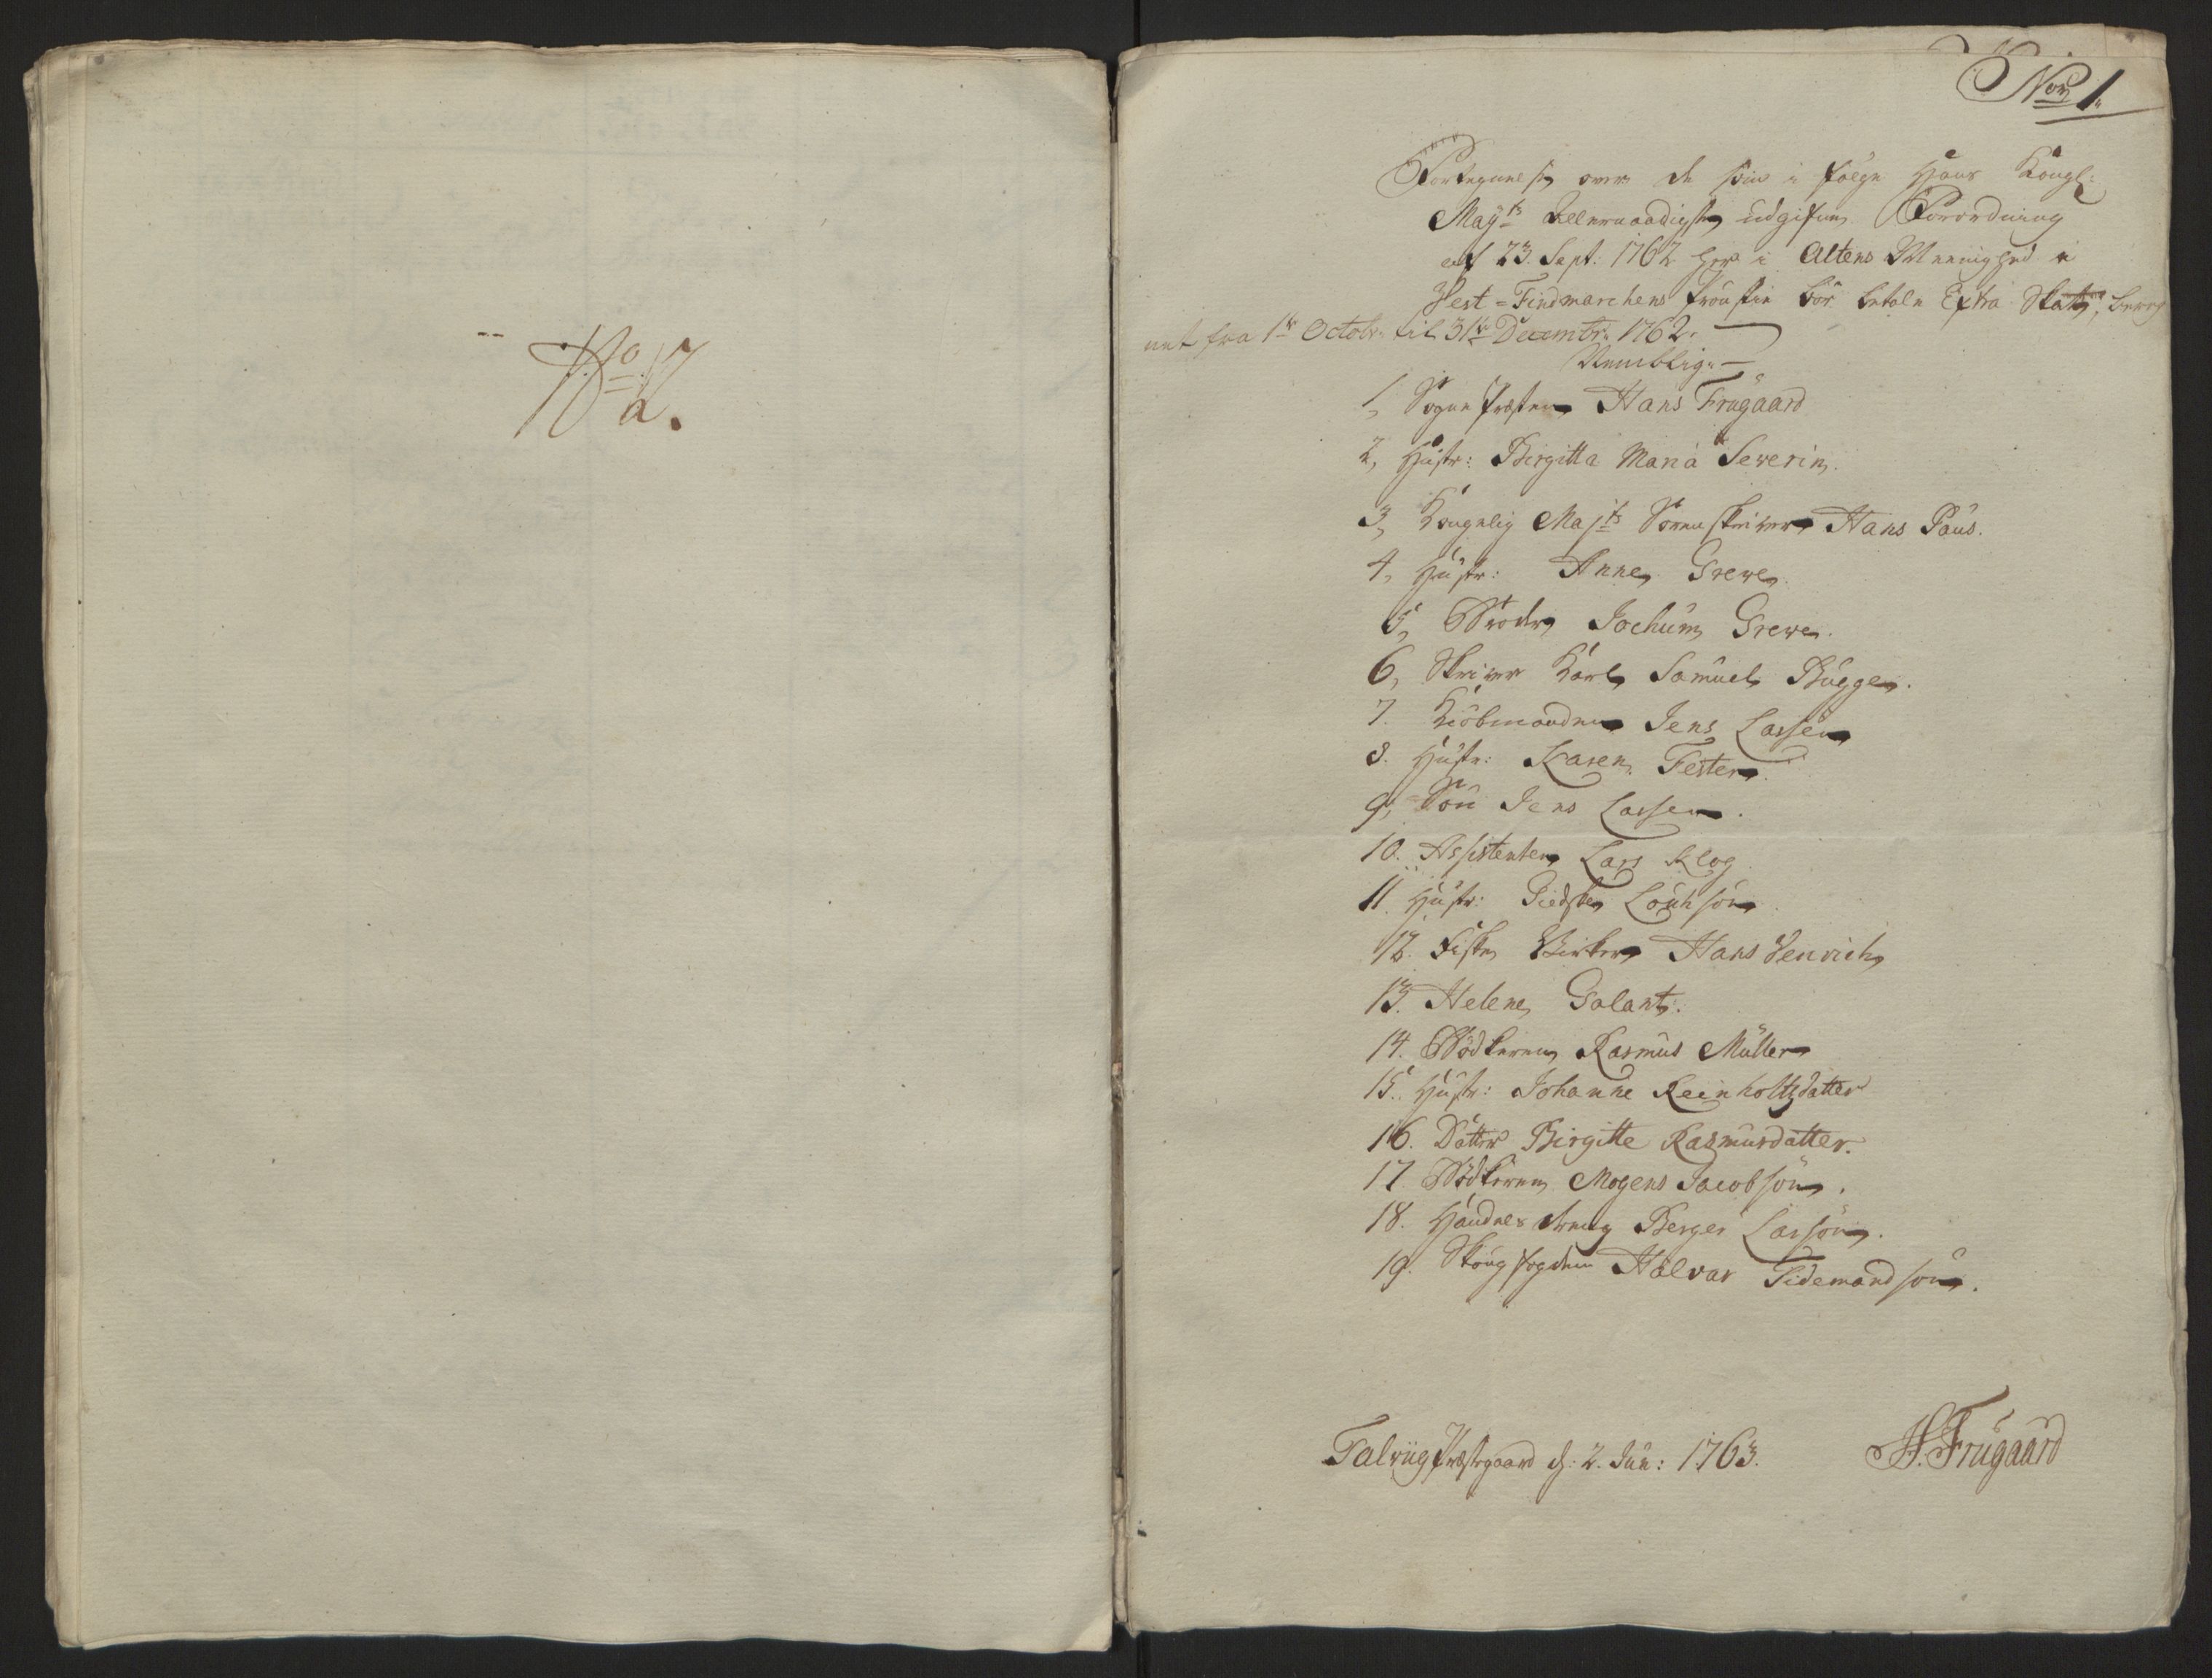 No 2.
No 1.
Fortegnelse over de som i følge Hans Kongl:
Mayts Allernaadigste udgifne Forordning
af 23 Sept: 1762 her i Altens Menighed i
Vest-Findmarchens Proustie bør betale Extra Skatt, bereg
net fra 1te Octobr: til 31te Decembr: 1762.
Nemblig:
1, Sogne Præsten Hans Frugaard
2, Hustr: Birgitta Maria Severin.
3, Kongelig Majts Sorenskriver Hans Paus.
4, Hustr: Anne Greve
5, Broder Jochum Greve.
6, Skriver Karl Samuel Bugge.
7. Kiöbmanden Jens Lassen
8. Hustr: Karen Fester.
9, Sön Jens Lassen.
10. Assistenten Lars Klog
11. Hustr: Giedske
12. Fiske Hans Henrich
13. Helene Galant.
14. Bödkeren Rasmus Müller
15. Hustr: Johanne Reinholtsdatter
16. Datter Birgitte Rasmusdatter.
17. Bödkeren Mogens Jacobsön.
18. Handels dreng Berger Larsön.
19. Skougfogden Halvar Tidemandsön.
Talviig Præstegaard d: 2. Jan: 1763. H. Frugaard